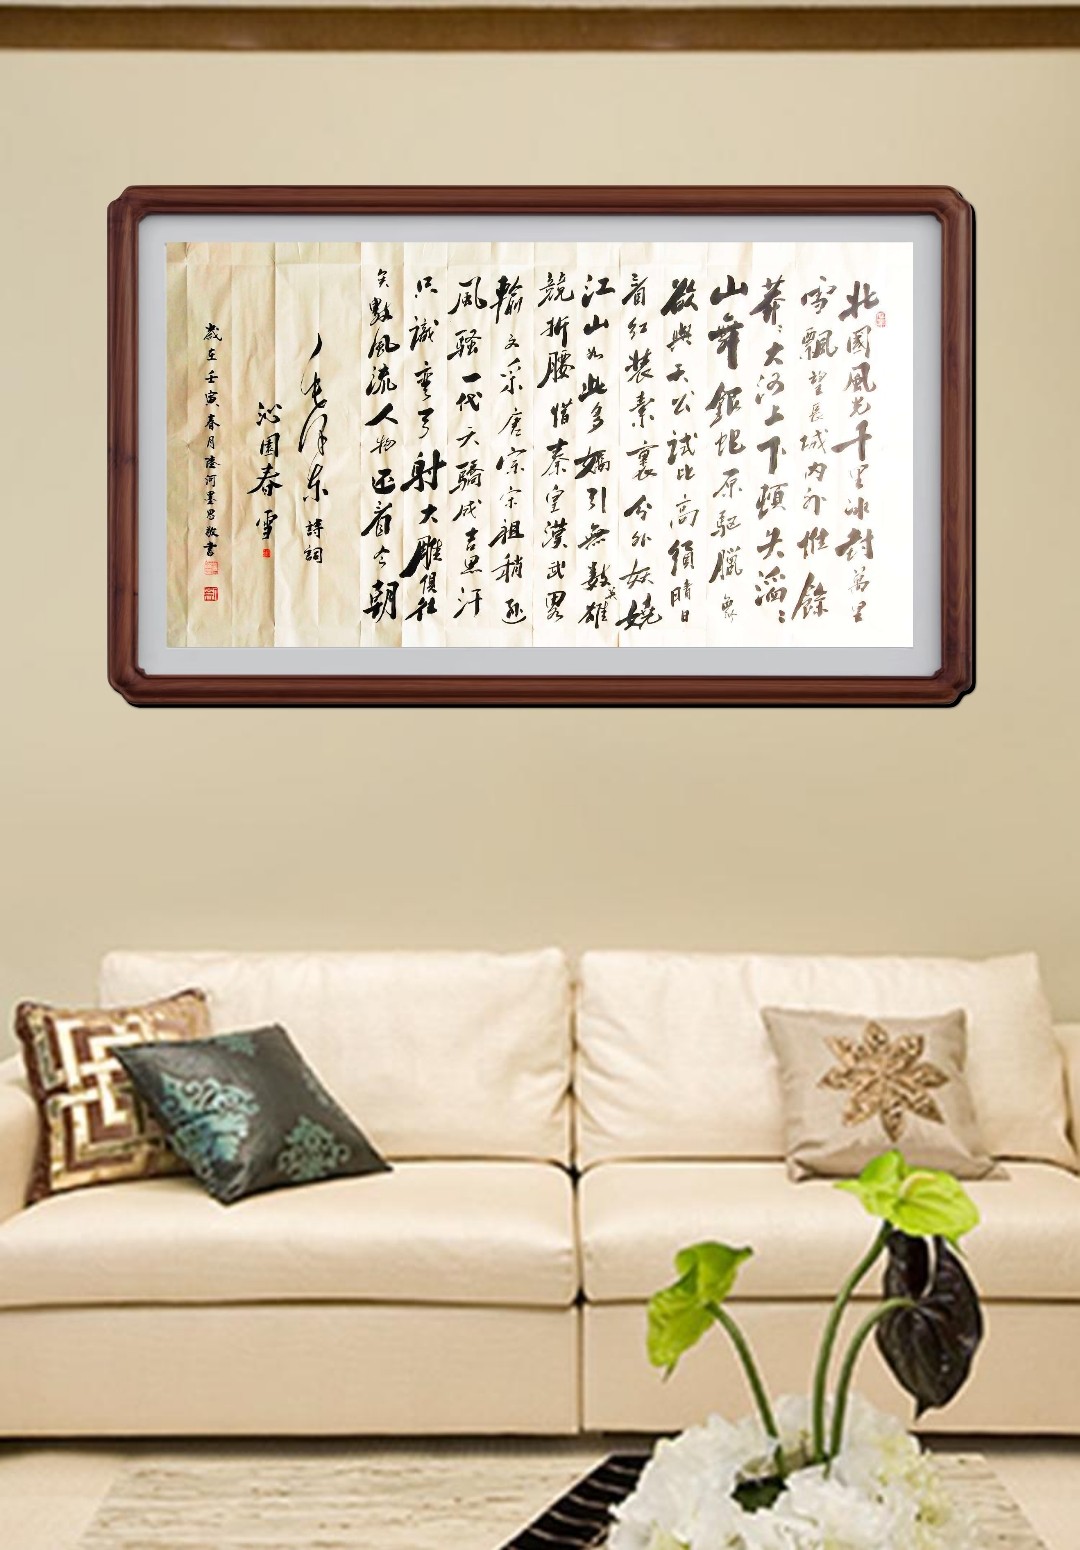 北國風光千里冰封萬里
雪飄望長城內外惟餘
莽〻大河上下頓失滔〻
山舞銀蛇原驅臘象
欲與天公試比高須晴日
看紅裝素裹分外妖嬈
江山如此多嬌引無數英雄
競折腰惜秦皇漢武略
輸文采唐宗宋祖稍遜
風騷一代天驕成吉思汗
只識彎弓射大雕俱往
矣數風流人物还看今朝
毛澤東詩詞
沁園春雪
歲在壬寅春月陸河墨敬書